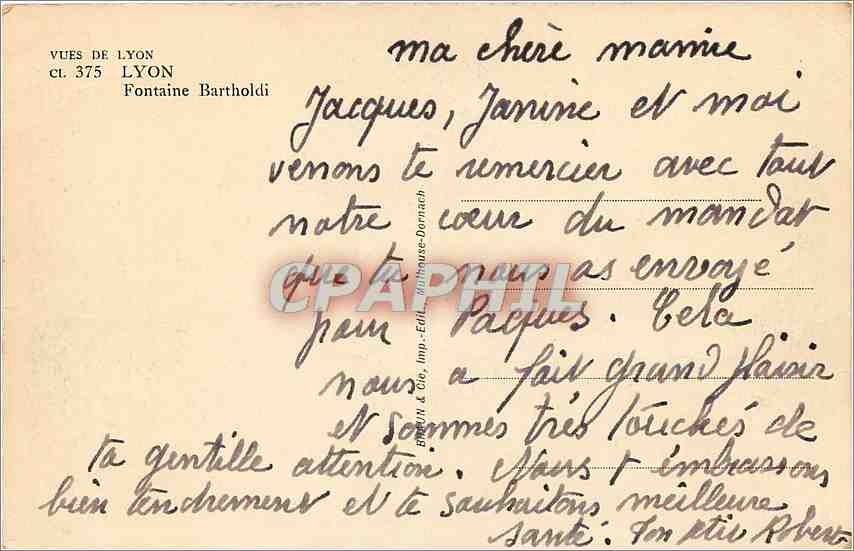 VUES DE LYON
Cl. 375 LYON
Fontaine Bartholdi
ma chère mamie
Jacques, Janine et moi
venons te remercier avec tout
notre cœur du mandat
que tu nous as envoyé
pour Paques. Cela
nous a fait grand plaisir
et sommes très touchés de
ta gentille attention. Nous t'embrassons
bien tendrement et te souhaitons meilleure
santé. Ton petit Robert
BRAUN & Cie, Imp.-Edit., Mulhouse-Dornach
CPAPHIL